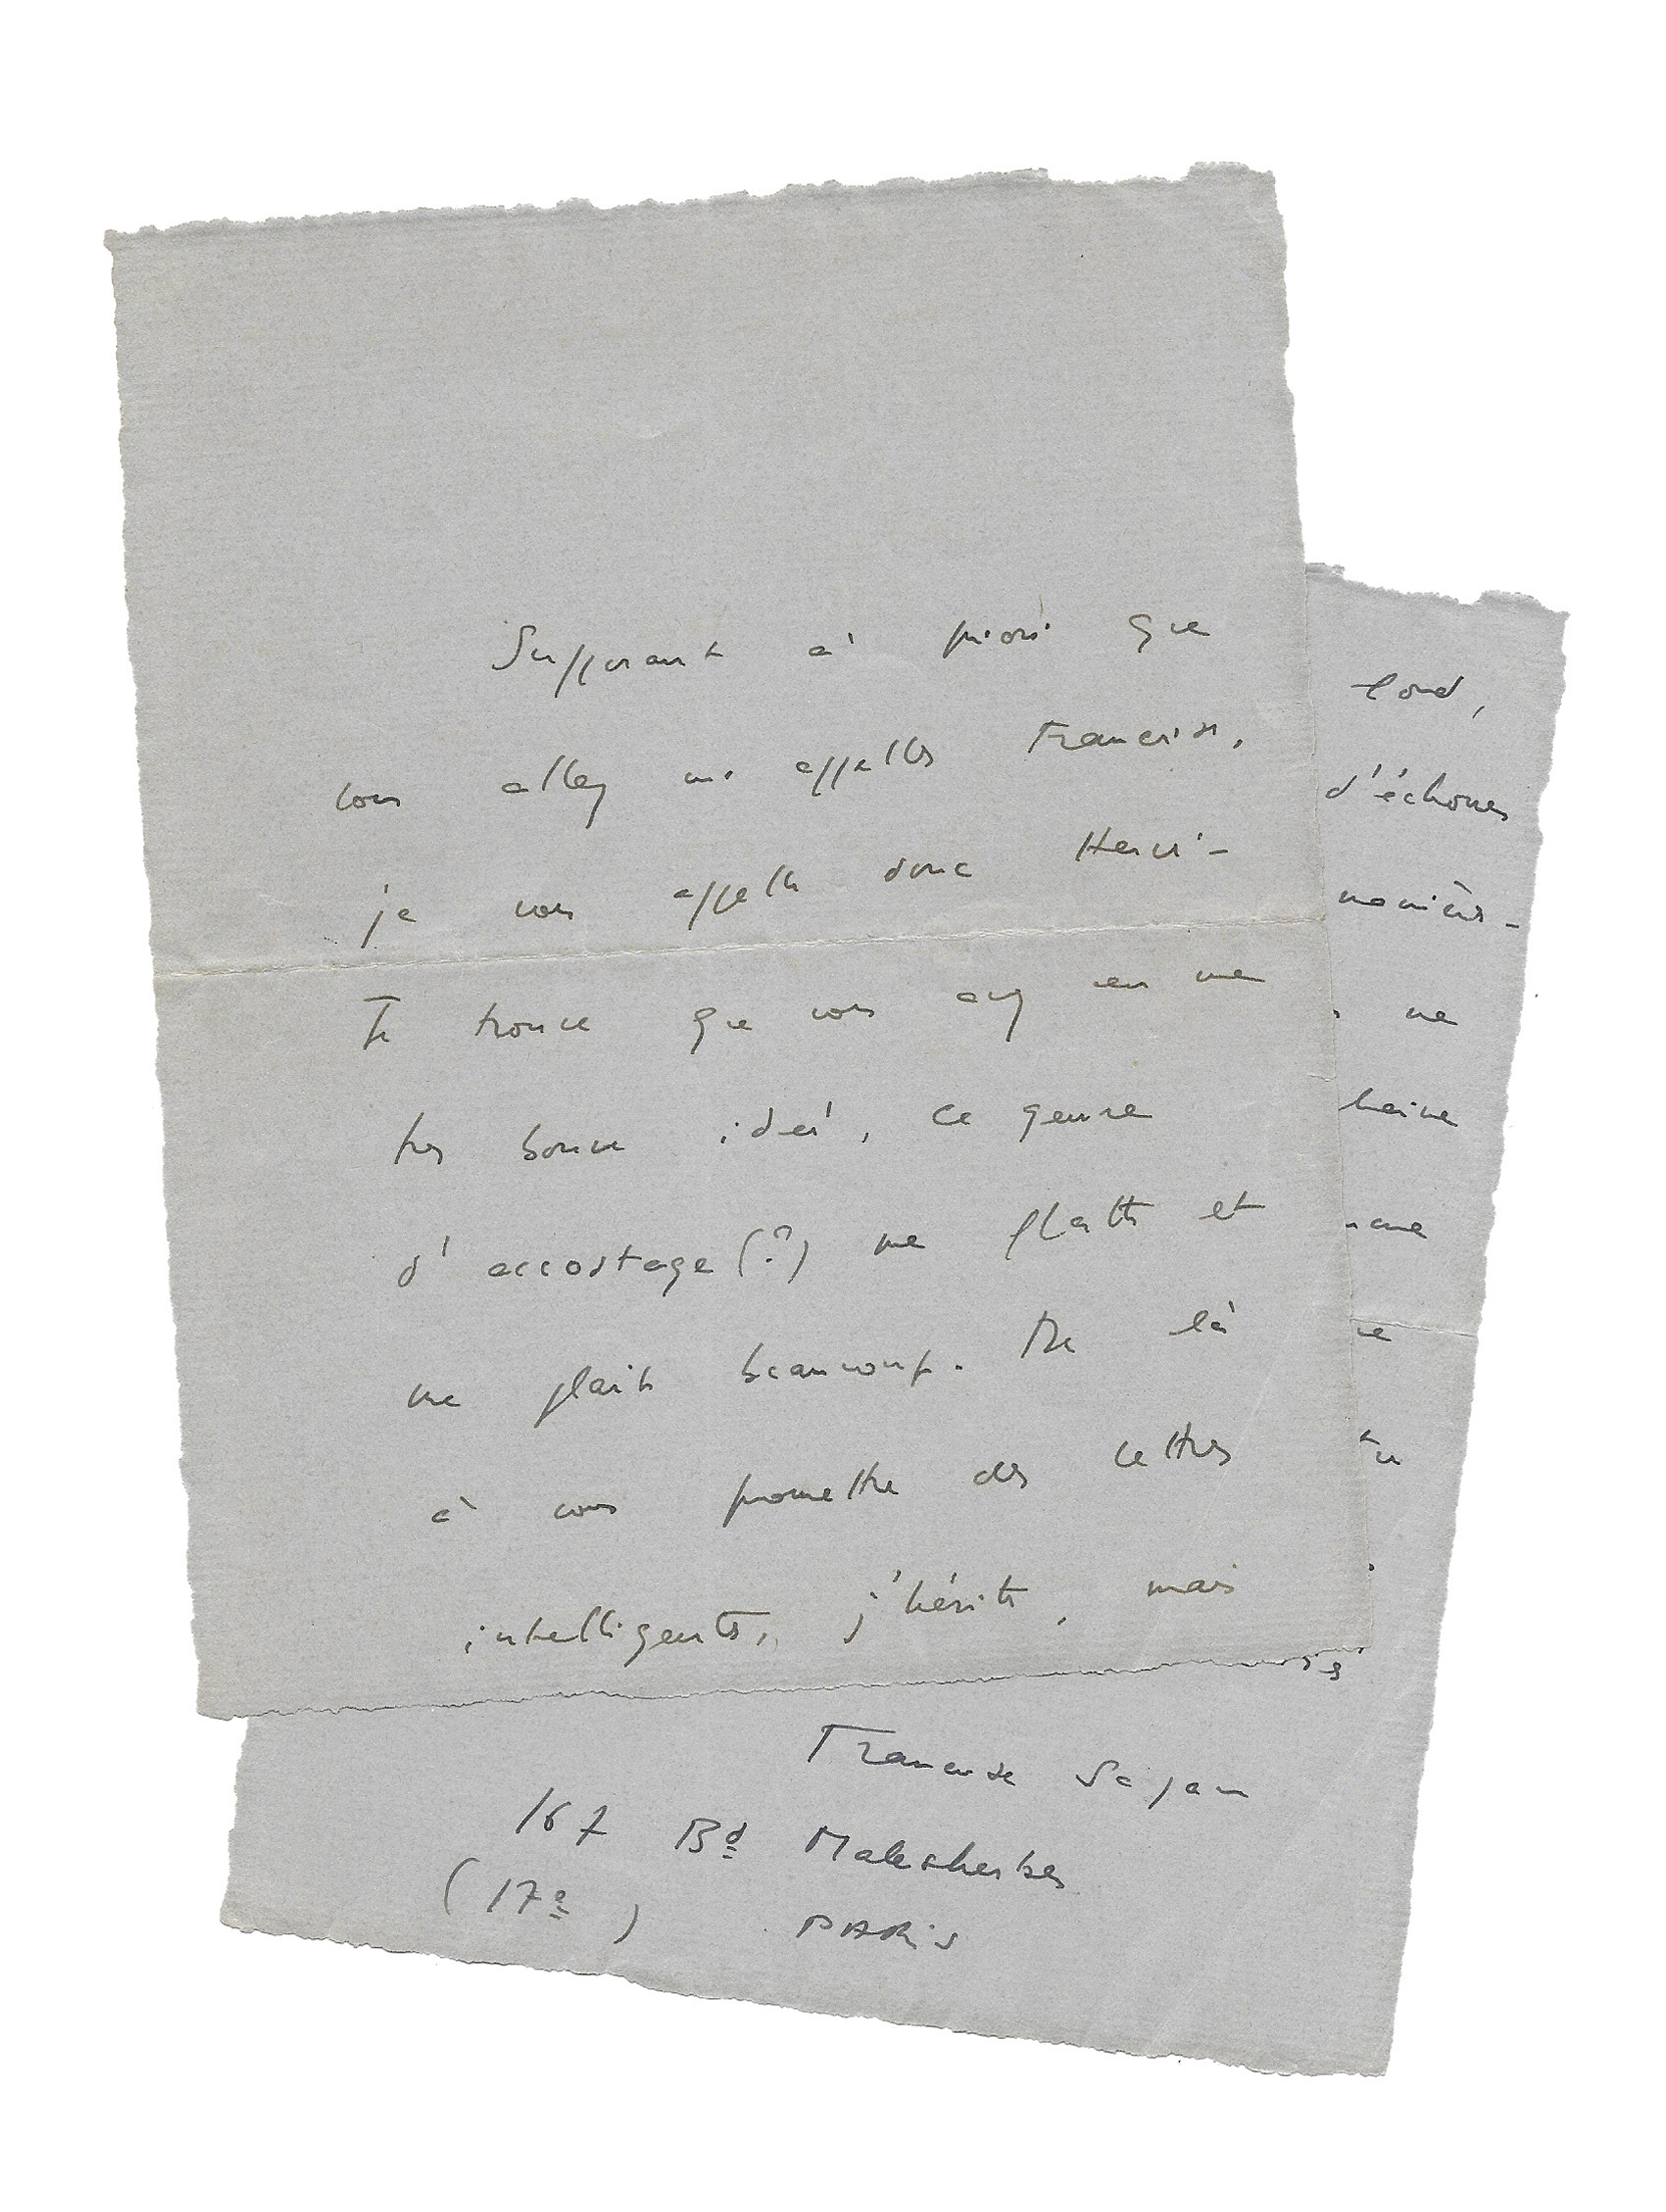 Supposant à priori que
vous allez m' appeller Françoise,
je vous appelle donc Henri -
Je trouve que vous avez eu une
très bonne idée, ce genre
d' accostage (?) me flatte et
me plait beaucoup. De là
à vous promettre des lettres
intelligentes, j'hésite, mais
fond,
d'échouer
manière -
ne
haine
Françoise Sagan
167 Bd Malesherbes
(17e) PARIS